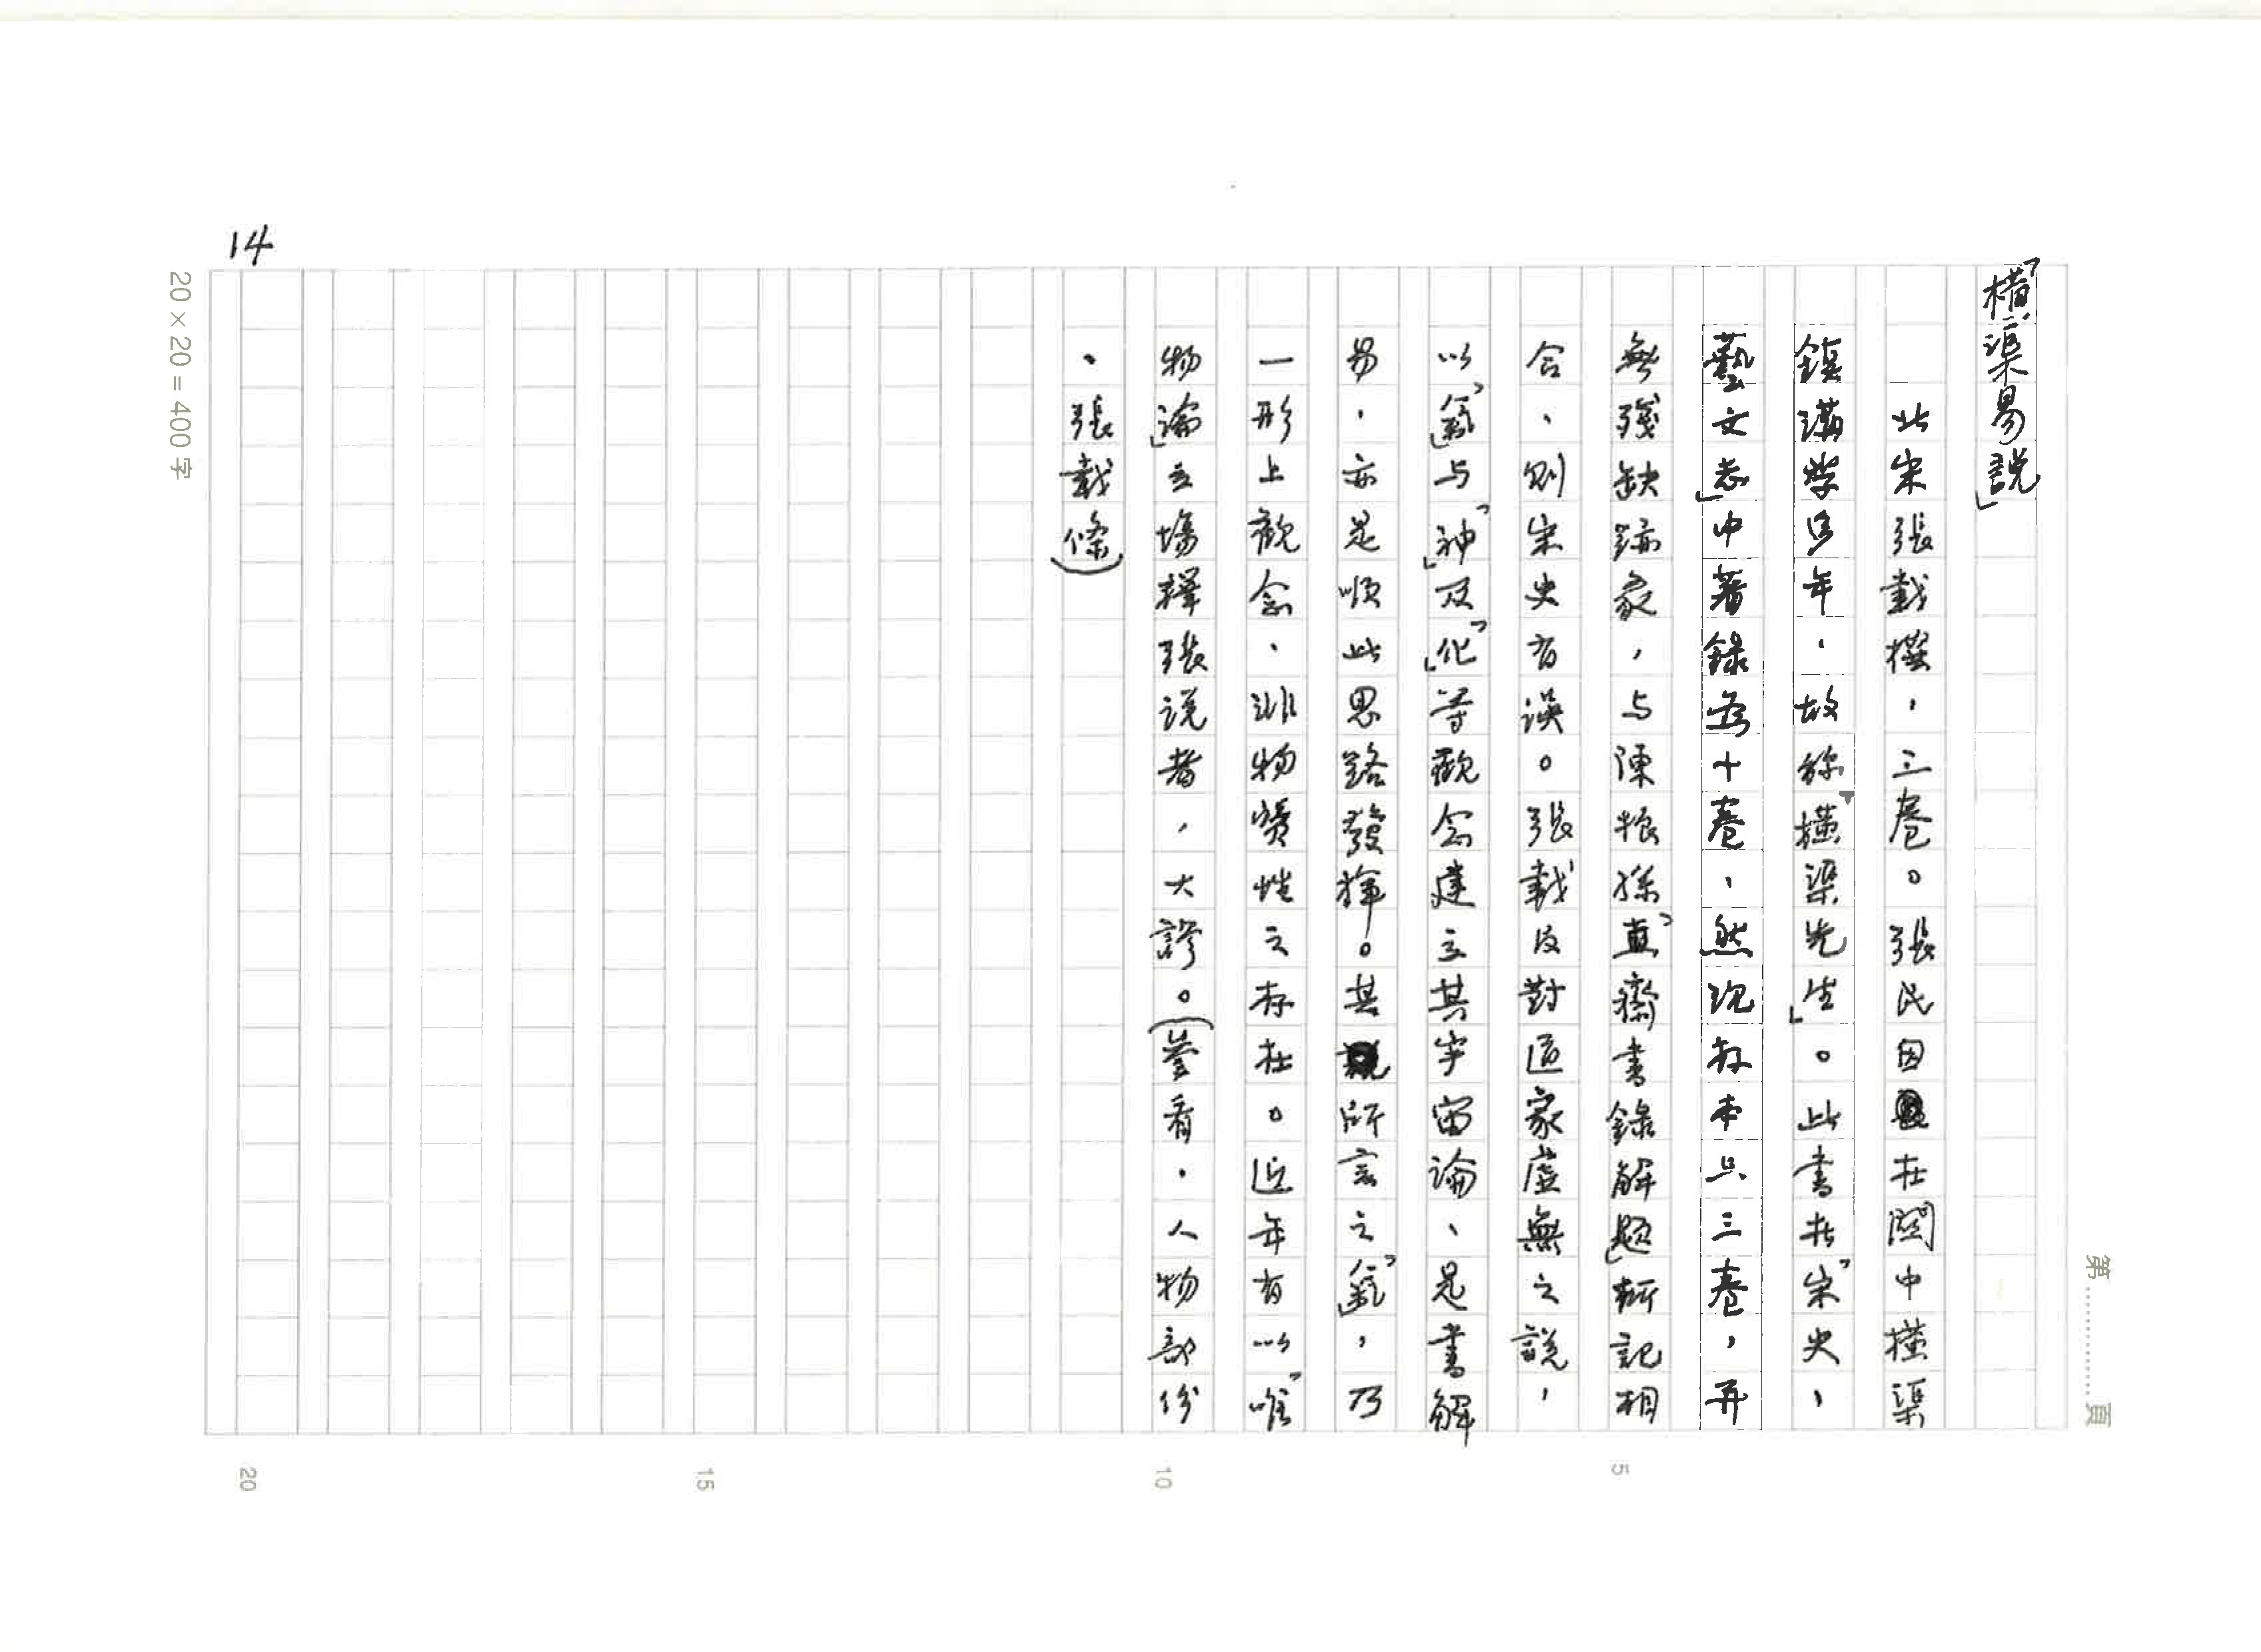 「橫渠易說」
北宋張載撰，三卷。張氏因在關中橫渠
鎮講學多年，故称「橫渠先生」。此書在「宋史，
藝文志」中著錄為十卷，然現存本只三卷，再
無殘缺跡象，与陳振孫「直齋書錄解題」所記相
合，則宋史有误。張載反對道家虛無之說，
以「氣」与「神」及「化」等觀念建立其宇宙論，是書解
易，亦是順此思路發揮。其所言之「氣」，乃
一形上觀念，非物質性之存在。近年有以「唯
物論」立場釋張说者，大謬。(參看．人物部份
．張載條)
14
20×20＝400字
第............頁
5
10
15
20